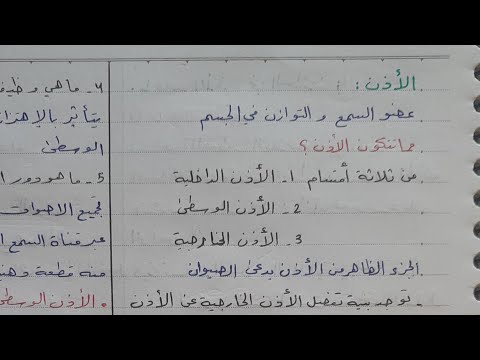 الأذن :
عضو السمع و التوازن في الجسم
مما تتكون الأذن ؟
من ثلاثة أقسام 1- الأذن الداخلية
2- الأذن الوسطى
3- الأذن الخارجية
الجزء الظاهر من الأذن يدعى الصيوان
- توجد بنية تفصل الأذن الخارجية عن الأذن
- ما هي وظيفة
يتأثر بالإهتزاز
الوسطى
5- ما هو دور ا
تجميع الاصوات
عبر قناة السمع ا
منه قطعة
الأذن الوسطى